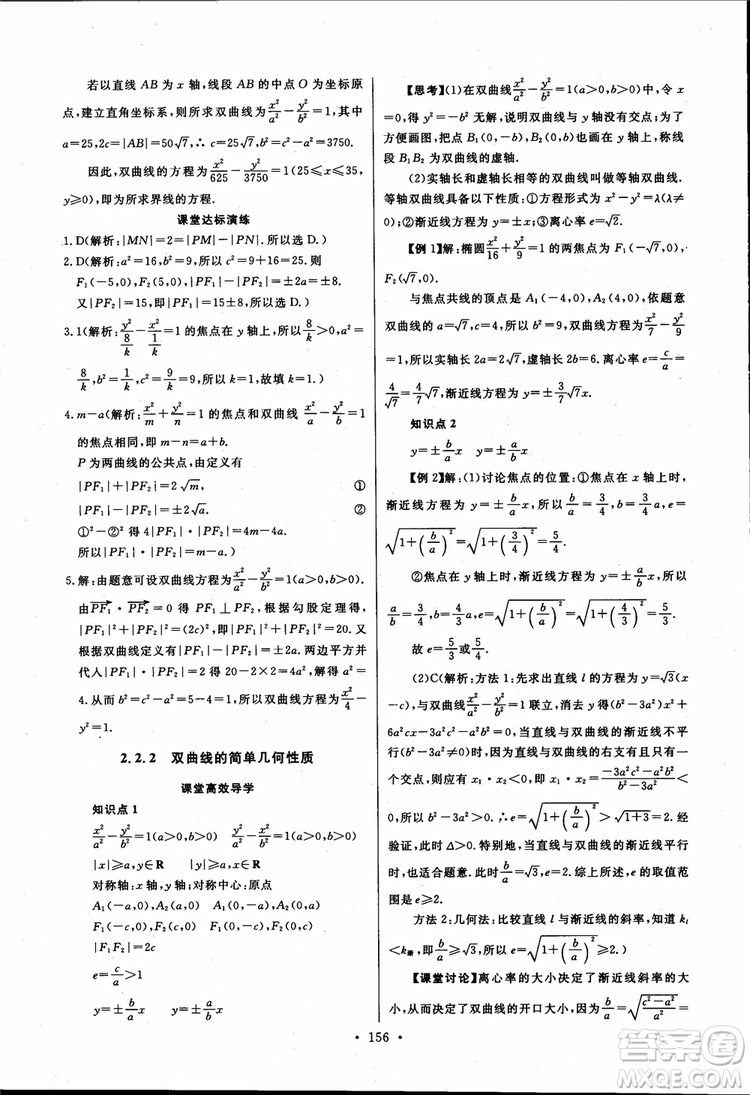 若以直线 AB 为 x 轴，线段 AB 的中点 O 为坐标原
点，建立直角坐标系，则所求双曲线为x²/a²－y²/b²＝1，其中
a＝25，2c＝|AB|＝50√7，∴c＝25√7，b²＝c²－a²＝3750.
因此，双曲线的方程为x²/625－y²/3750＝1(25≤x≤35，
y≥0)，即为所求界线的方程.
课堂达标演练
1. D(解析：|MN|＝2＝|PM|－|PN|. 所以选 D.)
2. D(解析：a²＝16，b²＝9，所以 c²＝9＋16＝25. 则
F₁(－5,0)，F₂(5,0)，|PF₁|－|PF₂|＝±2a＝±8.
又|PF₁|＝15，即|PF₂|＝15±8. 所以选 D.)
3. 1(解析：y²/(8/k)－x²/(1/k)＝1 的焦点在 y 轴上，所以8/k＞0，a²＝
8/k，b²＝1/k，c²＝9/k＝9. 所以 k＝1，故填 k＝1.)
4. m－a(解析：x²/m＋y²/n＝1 的焦点和双曲线x²/a－y²/b＝1
的焦点相同，即 m－n＝a＋b.
P 为两曲线的公共点，由定义有
|PF₁|＋|PF₂|＝2√m， ①
|PF₁|－|PF₂|＝±2√a. ②
①²－②² 得 4|PF₁|·|PF₂|＝4m－4a.
所以|PF₁|·|PF₂|＝m－a.)
5. 解：由题意可设双曲线方程为x²/a²－y²/b²＝1.
由PF₁→·PF₂→＝0 得 PF₁⊥PF₂，根据勾股定理得，
|PF₁|²＋|PF₂|²＝(2c)²，即|PF₁|²＋|PF₂|²＝20. 又
根据双曲线定义有|PF₁|－|PF₂|＝±2a. 两边平方并
代人|PF₁|·|PF₂|＝2 得 20－2×2＝4a²，解得 a²＝
4. 从而 b²＝c²－a²＝5－4＝1，所以双曲线方程为x²/4－
y²＝1.
2.2.2 双曲线的简单几何性质
课堂高效导学
知识点 1
x²/a²－y²/b²＝1(a＞0，b＞0) y²/a²－x²/b²＝1(a＞0，b＞0)
|x|≥a，y∈R |y|≥a，x∈R
对称轴：x 轴，y 轴；对称中心：原点
A₁(－a,0)，A₂(a,0) A₁(0,－a)，A₂(0,a)
F₁(－c,0)，F₂(c,0) F₁(0,－c)，F₂(0,c)
|F₁F₂|＝2c
e＝c/a＞1
y＝±b/a x y＝±a/b x
【思考】(1)在双曲线x²/a²－y²/b²＝1(a＞0，b＞0)中，令 x
＝0，得 y²＝－b² 无解，说明双曲线与 y 轴没有交点；为了
方便画图，把点 B₁(0,－b)，B₂(0,b)也画在 y 轴上，称线
段 B₁B₂ 为双曲线的虚轴.
(2)实轴长和虚轴长相等的双曲线叫做等轴双曲线.
等轴双曲线有以下性质：①方程形式为 x²－y²＝λ(λ≠
0)；②渐近线方程为 y＝±x；③离心率 e＝√2.
【例 1】解：椭圆x²/16＋y²/9＝1 的两焦点为 F₁(－√7,0)，
F₂(√7,0).
与焦点共线的顶点是 A₁(－4,0)，A₂(4,0)，依题意
双曲线的 a＝√7，c＝4，所以 b²＝9，双曲线方程为x²/7－y²/9＝
1. 所以实轴长 2a＝2√7，虚轴长 2b＝6. 离心率 e＝c/a＝
4/√7＝4/7√7，渐近线方程为 y＝±b/a x＝±3/7√7x.
知识点 2
y＝±b/a x y＝±a/b x
【例 2】解：(1)讨论焦点的位置：①焦点在 x 轴上时，
渐近线方程为 y＝±b/a x，所以b/a＝3/4，离心率 e＝c/a＝
√(1＋(b/a)²)＝√(1＋(3/4)²)＝5/4.
②焦点在 y 轴上时，渐近线方程为 y＝±a/b x，所以
a/b＝3/4，b/a＝4/3，离心率 e＝c/a＝√(1＋(b/a)²)＝√(1＋(4/3)²)＝5/3.
故 e＝5/3或5/4.
(2)C(解析：方法 1：先求出直线 l 的方程为 y＝√3(x
－c)，与双曲线x²/a²－y²/b²＝1 联立，消去 y 得(b²－3a²)x²＋
6a²cx－3a²c²－a²b²＝0，当直线与双曲线的渐近线不平
行时，此方程为一元二次方程，由于直线与双曲线右支有一
个交点，所以 b²－3a²≠0，且 x₁·x₂＝(－3a²c²－a²b²)/(b²－3a²)＜
0，所以b/a＞√3＞0. ∴e＝√(1＋(b/a)²)＞√(1＋3)＝2. 经
验证，此时 Δ＞0. 特别地，当直线与双曲线的渐近线平行
时，也适合题意. 此时b/a＝√3，e＝2. 综上可知，e 的取值范
围为 e≥2.
方法 2：几何法：比较直线 l 与渐近线的斜率，知道 kₗ
≤k渐，即b/a≥√3，所以离心率 e＝√(1＋(b/a)²)≥2.)
【课堂讨论】离心率的大小决定了渐近线斜率的大
小，从而决定了双曲线的开口大小，因为b/a＝√((c²－a²)/a²)＝
• 156 •
答案圈
MXQE.COM